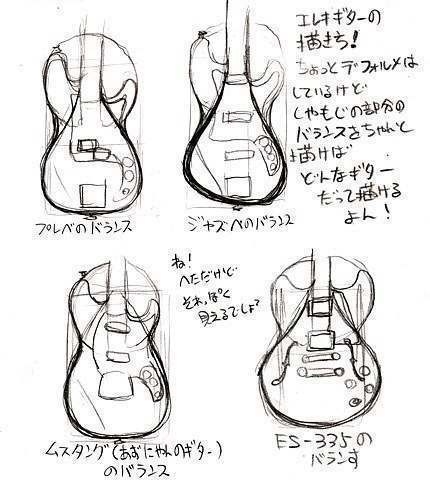 エレキギターの
描き方!
ちょっとデフォルメは
しているけど
しゃもじの部分の
バランスをちゃんと
描けば
どんなギター
だって描ける
よん!
プレベのバランス
ジャズベのバランス
ね!
へただけど
それっぽく
見えるでしょ?
ムスタング(あずにゃんのギター)
のバランス
ES-335の
バランす